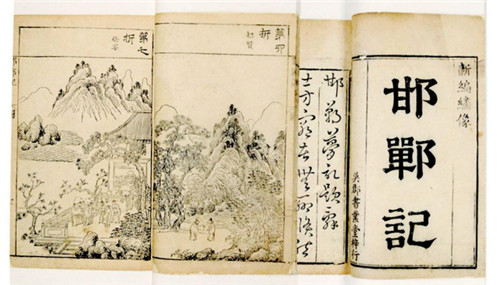 新編繡像
邯鄲記
吳郡書業堂梓行
邯鄲夢記題辭
士方窮苦無聊倏然
折
第七
折